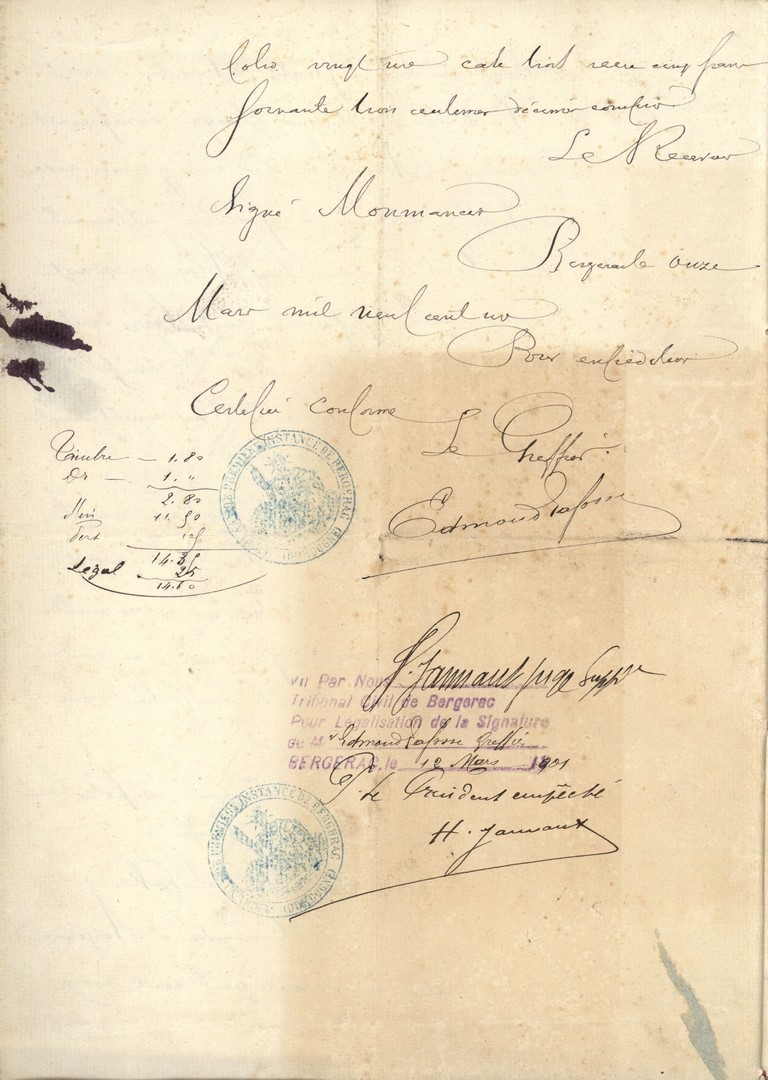 folio vingt une case trois reçu cinq francs
soixante trois centimes décimes compris
Le Receveur
Signé
Bergerac le onze
Mars mil neuf cent un
Pour expédition
Certifié conforme
Le Greffier
Edmond Lafosse
Timbre — 1.80
Or — 1."
2.80
11.50
14.35
Légal 25
14.60
TRIBUNAL DE PREMIERE INSTANCE DE BERGERAC (DORDOGNE)
H. Jannaut juge Supp
Vu Par Nous
Tribunal Civil de Bergerac
Pour Légalisation de la Signature
de Mr Edmond Lafosse Greffier
BERGERAC, le 12 Mars 1901
P. le Président empêché
H. Jannaut
DE PREMIERE INSTANCE DE BERGERAC (DORDOGNE)